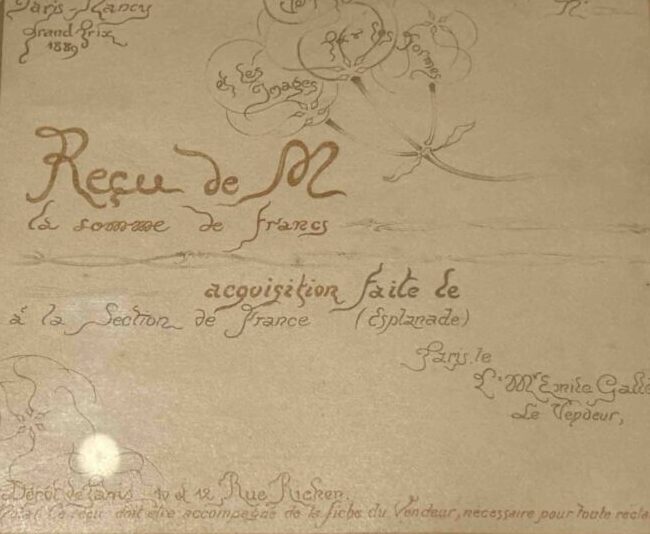 Paris-Nancy
Grand Prix
1889
N:
les Formes
et les Images
Reçu de M
la somme de francs
acquisition faite le
à la Section de France (Esplanade)
Paris. le
Pr Mr Emile Gallé
Le Vendeur,
Dépôt de Paris. 10 et 12 Rue Richer.
Ce reçu doit être accompagné de la fiche du Vendeur, nécessaire pour toute récla